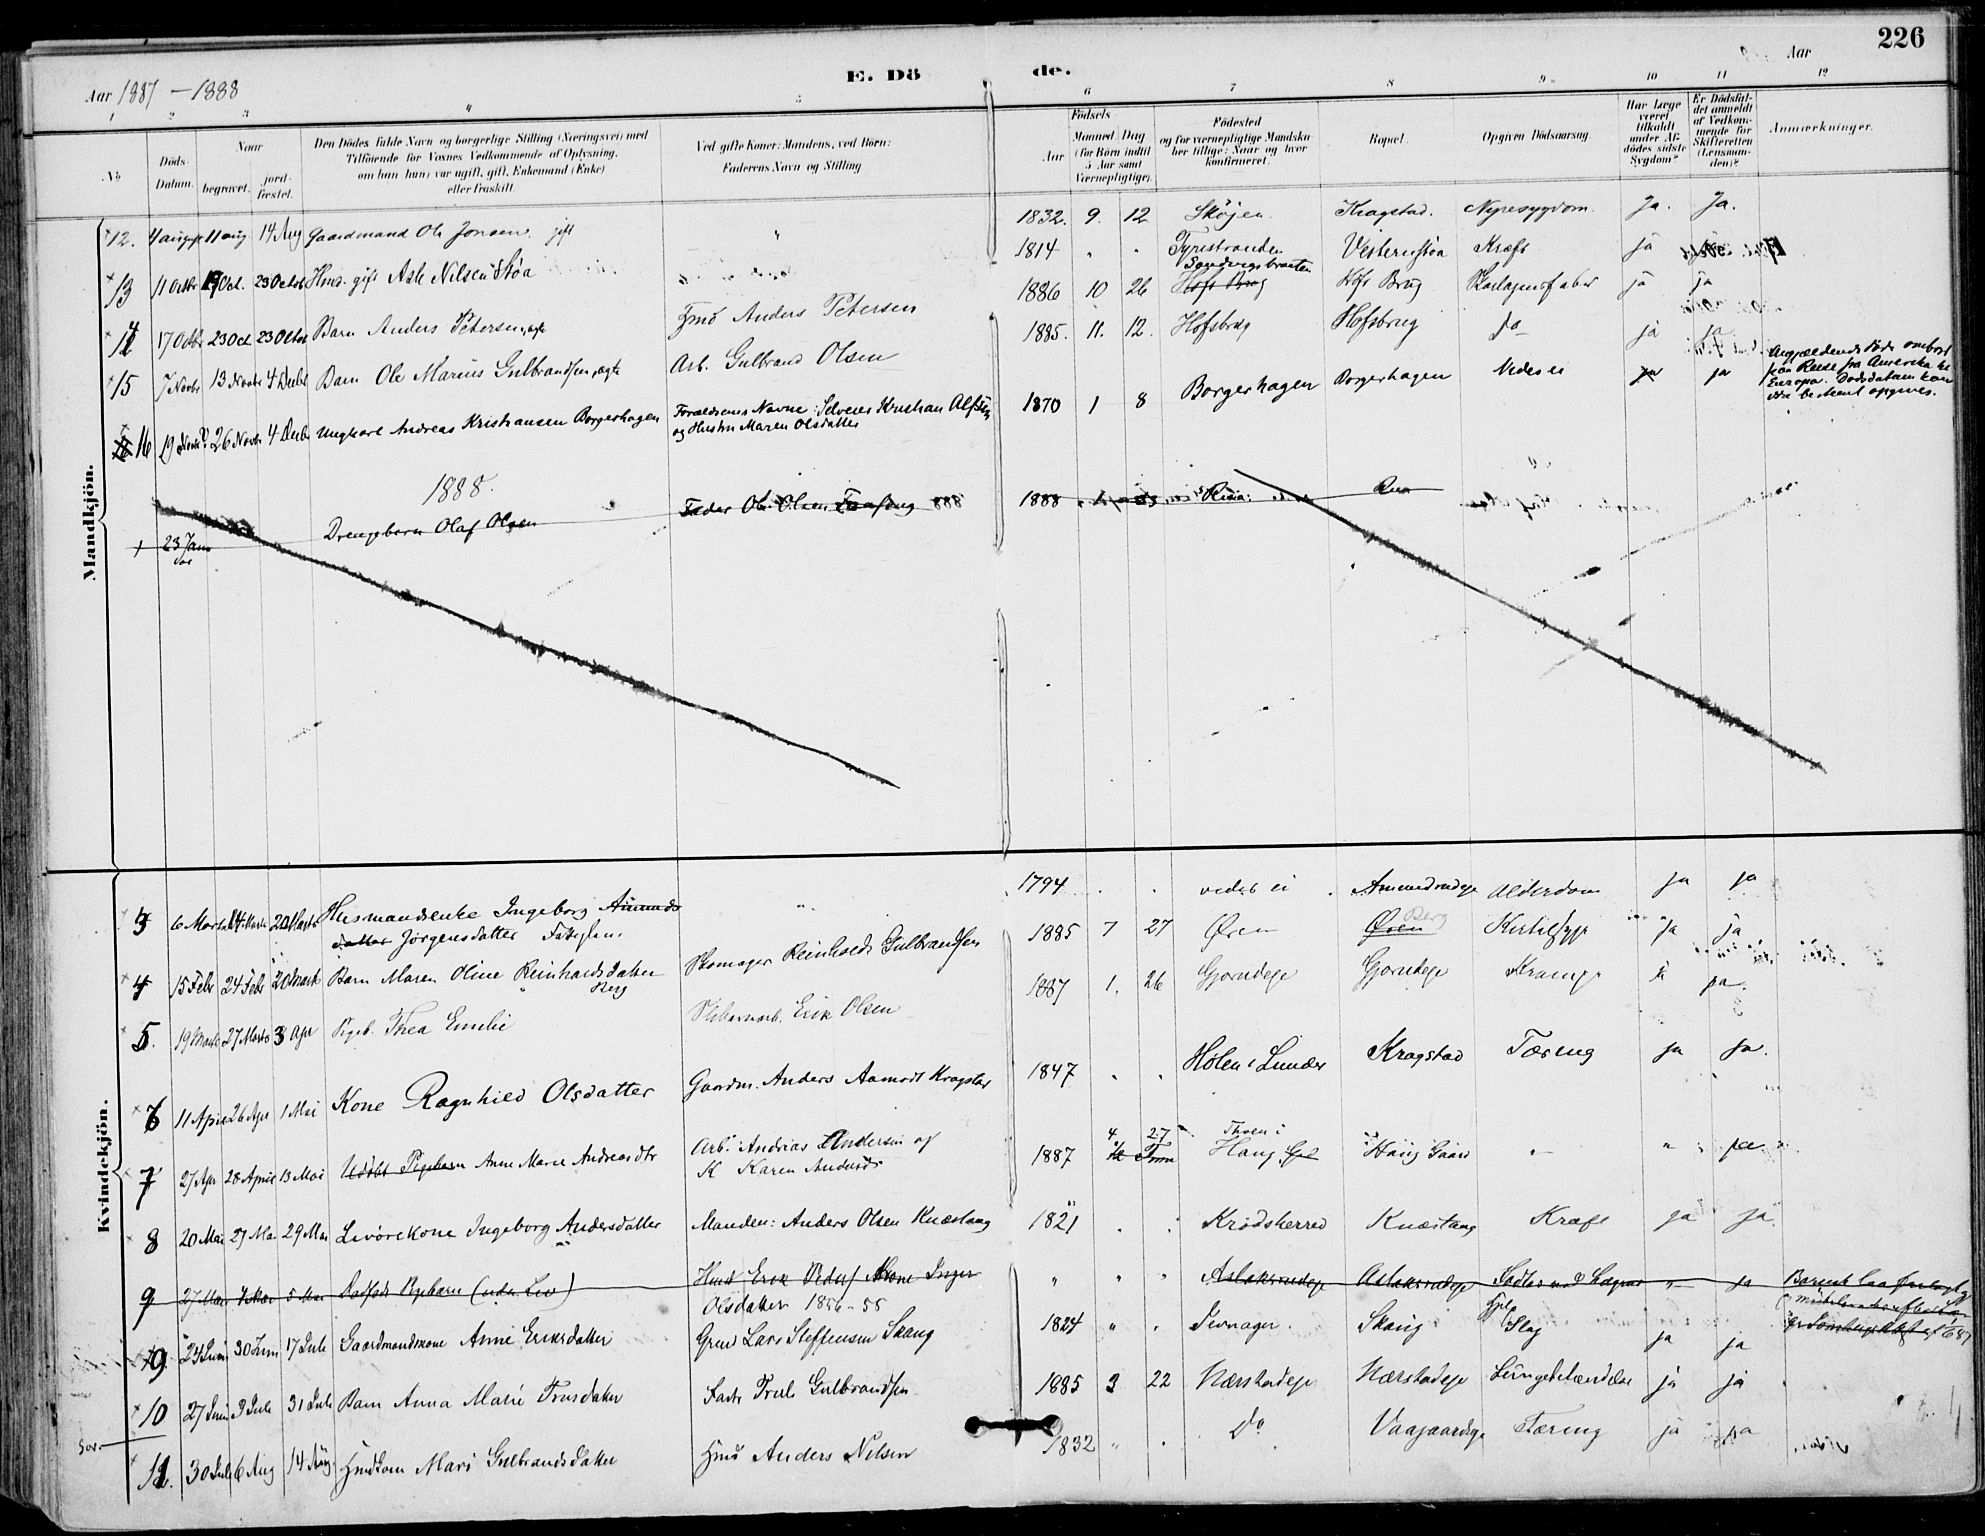 226
Aar 1887 - 1888
E. Dö de.
Aar
1 2 3 4 5 6 7 8 9 10 11 12
No.
Döds- Datum.
Naar
begravet.
jord- fæstet.
Den Dödes fulde Navn og borgerlige Stilling (Næringsvei) med
Tilföiende for Voxnes Vedkommende af Oplysning,
om han (hun) var ugift, gift, Enkemand (Enke)
eller fraskilt.
Ved gifte Koner: Mandens, ved Börn:
Faderens Navn og Stilling
Födsels
Aar
Maaned Dag
(for Börn indtil
5 Aar samt
Værnepligtige).
Födested
og for værnepligtige Mandskaber tillige: Naar og hvor
konfirmeret.
Bopæl.
Opgiven Dödsaarsag.
Har Læge
været
tilkaldt
under Afdödes sidste
Sygdom?
Er Dödsfaldet anmeldt
af Vedkommende for
Skifteretten
(Lensmanden)?
Anmærkninger.
Mandkjön.
12. 4 august 11 aug 14 Aug Gaardmand Ole Jonsen. gift " 1832. 9. 12 Skøjen Kragstad. Nyresygdom Ja. Ja.
13 11 Octbr 17 Oct. 23 Octob Husm. gift Asle Nilsen Støa " 1814 " " Tyristranden Vesternstøa Kræft ja
Sandvigsbraaten
14 17 Octbr 23 Oct 23 Octob Barn Anders Petersen, ægte Hmd Anders Petersen 1886 10 26 Hofs Brug Hofs Brug Skarlagensfeber ja ja
15 7 Novbr 13 Novbr 4 Decbr Barn Ole Marius Gulbrandsen, ægte Arb. Gulbrand Olsen 1885. 11. 12. Hofsbrug Hofsbrug do ja ja
16 19 Novbr? 26 Novbr 4 Decbr Ungkarl Andreas Kristiansen Borgerhagen Forældrenes Navne: Selveier Kristian Alfsen
og Hustru Maren Olsdatter 1870 1 8 Borgerhagen Borgerhagen Vides ei ja ja
Angjældende døde ombord
paa Reise fra Amerika til
Europa. Dødsdatum kan
ikke bestemt opgives.
1888.
1 23 Janr Drengebarn Olaf Olsen Fader Ole Olsen 888 1888 Rua
Kvindekjön.
3 6 Marts 14 Marts 20 Marts Husmandsenke Ingeborg Amunds
datter Jørgensdatter Fattiglem. " 1794 " " vides ei Amundrudeje Alderdom ja ja
4 15 Febr 24 Febr 20 Marts Barn Maren Oline Reinhardsdatter
Berg Skomager Reinhardt Gulbrandsen 1885 7 27 Øren Øren Berg Kirtelsyge ja ja
5. 19 Marts 27 Marts 3 Apr Pigeb. Thea Emilie Erik Olsen 1887 1. 26 Gjørudeje Gjørudeje Krampe ja ja.
6 11 April 26 Apr 1 Mai Kone Ragnhild Olsdatter Gaardm. Anders Aamodt Kragstad 1847 " " Hølen i Lunder Kragstad Tæring ja ja.
7 27 Apr 28 April 13 Mai Udøbt Pigebarn Anne Marie Andreasdtr Arb. Andrias Andersen og
K Karen Andersdtr 1887 4 27 Haug Haug Gaard " " ja
8 20 Mai 27 Mai 29 Mai Livørekone Ingeborg Andersdatter Manden: Anders Olsen Knæstang 1821 " " Krødsherred Knæstang Kræft ja ja.
9 27 Mai Mai 5 Mai Dødfødt Pigebarn Husm Erik Kone Inger
Olsdatter 1856-55 " " " Aslaksrudeje Aslaksrudeje " ja
9 24 Juni 30 Juni 17 Juli Gaardmandskone Anne Eriksdatter Grmd Lars Steffensen Skaug 1824 " " Jevnager Skaug Slag ja ja
10 27 Juni 3 Juli 31 Juli Barn Anna Marie Trulsdatter Fader Truls Gulbrandsen 1885 3 22 Nærstadeje Nærstadeje Lungebetændelse ja ja
11. 30 Juli 6 Aug 14 Aug Hmdkone Mari Gulbrandsdatter Hmd Anders Nilsen 1832 " " Do Vaagaardseje Tæring ja ja